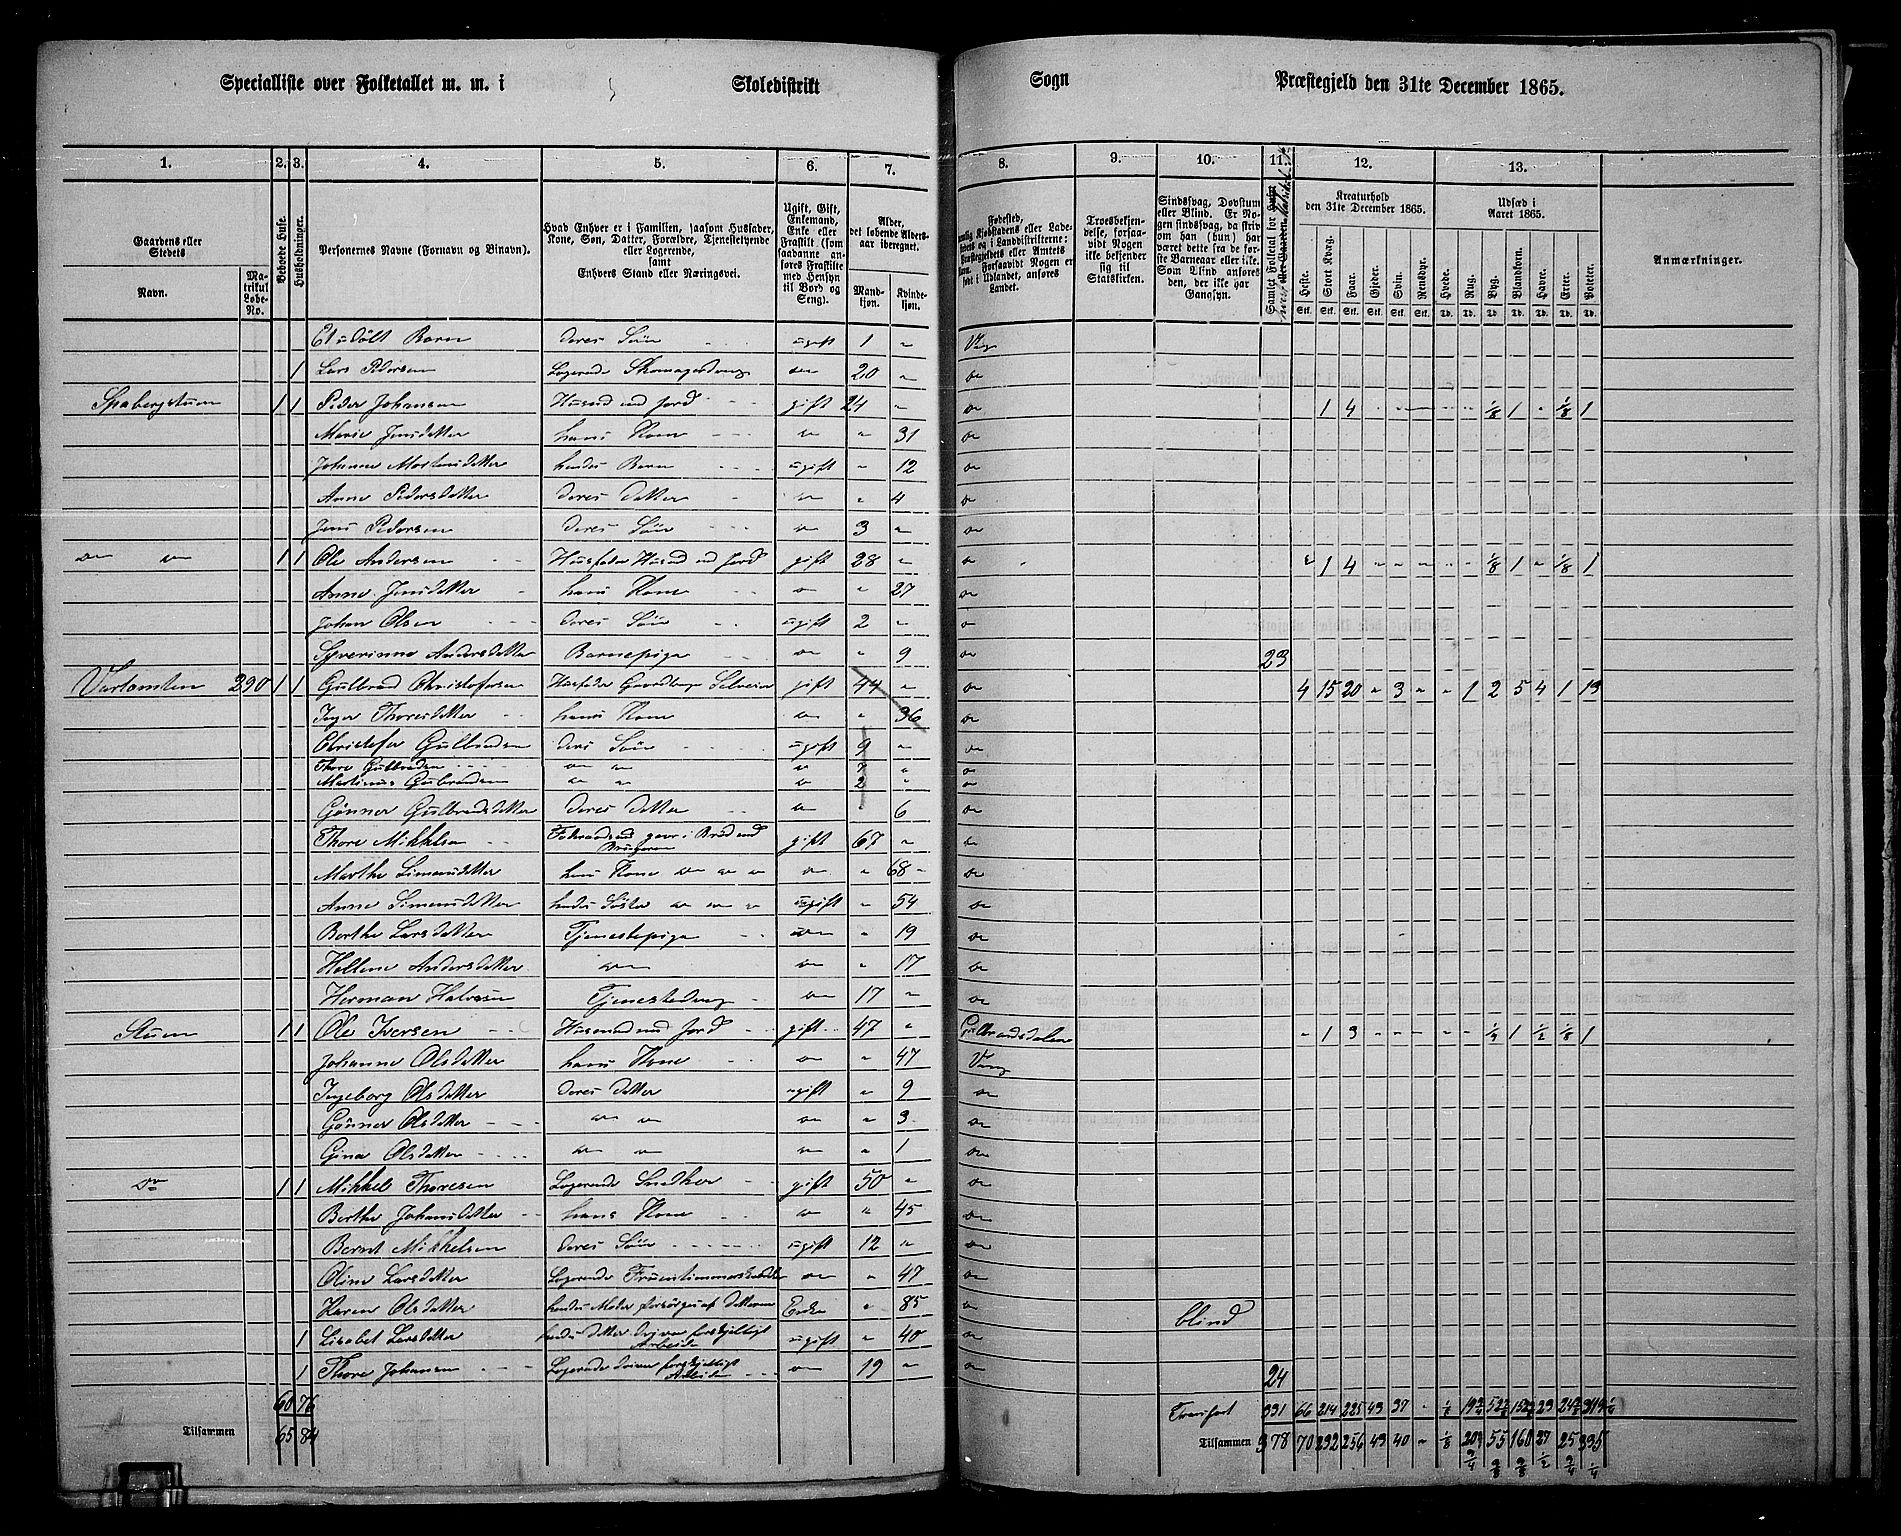 Specialliste over Folketallet m. m. i Skoledistrikt Sogn Præstegjeld den 31te December 1865.
1. 2. 3. 4. 5. 6. 7. 8. 9. 10. 11. 12. 13.
Gaardens eller Stedets
Navn.
Matrikul Løbe-No.
Beboede Huse.
Husholdninger.
Personernes Navne (Fornavn og Binavn).
Hvad Enhver er i Familien, saasom Husfader, Kone, Søn, Datter, Forældre, Tjenestetyende eller Logerende, samt Enhvers Stand eller Næringsvei.
Ugift, Gift, Enkemand, Enke eller Fraskilt (som saadanne anføres Fraskilte med Hensyn til Bord og Seng).
Alder, det løbende Aldersaar iberegnet.
Mandkjøn. Kvindekjøn.
Troesbekjendelse, forsaavidt Nogen ikke bekjender sig til Statskirken.
Sindssvag, Døvstum eller Blind. Er Nogen sindssvag, da skriv om han (hun) har været dette fra de første Barneaar eller ikke. Som Blind anføres den, der ikke har Gangsyn.
Kreaturhold den 31te December 1865.
Heste. Stort Kvæg. Faar. Gjeder. Svin. Rensdyr.
Udsæd i Aaret 1865.
Hvede. Rug. Byg. Blandkorn. Havre. Erter. Poteter.
Anmærkninger.
Barn deres Søn ugift 1 " Vang
1 Lars Pedersen Logerende 20 " do
1 1 Peder Johansen Husmd md Jord gift 24 " do 1 4 1/8 1 " 1/8 1
Marie Jensdatter hans Kone do " 31 do
Johanne Mortensdatter hendes Barn ugift " 12 do
Anne Pedersdatter deres Datter do " 4 do
Jens Pedersen deres Søn do 3 " do
do do 1 1 Ole Andersen Husfader Husmd md Jord gift 28 " do " 1 4 " " " " " 1/8 1 " 1/8 1
Anne Jensdatter hans Kone do " 27 do
Johan Olsen deres Søn ugift 2 " do
Syverinne Andersdatter Barnepige do " 9 do 23
290 1 1 Gulbrand Christofersen Husfader Gaardbruger Selveier gift 44 " do 4 15 20 " 3 " " 1 2 5 4 1 13
Inger Thoresdatter hans Kone do " 36 do
Christofer Gulbrandsen deres Søn ugift 9 " do
Thore Gulbrandsen do do do 7 " do
Martinus Gulbrandsen do do do 2 " do
Gunner Gulbrandsdatter deres Datter do " 6 do
Thore Mikkelsen gift 67 " do
Marthe Simensdatter hans Kone do do do do " 68 do
Anne Simensdatter hendes Søster do do do ugift " 54 do
Berthe Larsdatter Tjenestepige do " 19 do
Hellene Andersdatter do do " 17 do
Herman Halvorsen Tjenestedreng do 17 " do
Stuen 1 1 Ole Iversen Husmand md Jord gift 47 " Gulbrandsdalen " 1 3 " " " " " 1/4 1 1/2 1/8 1
Johanne Olsdatter hans Kone do " 47 Vang
Ingeborg Olsdatter deres Datter ugift " 9 do
Gunner Olsdatter do do do " 3 do
Gina Olsdatter do do do " 1 do
do 1 1 Mikkel Thoresen Logerende Snedker gift 50 " do
Berthe Johansdatter hans Kone do " 45 do
Bernt Mikkelsen deres Søn ugift 12 " do
Oline Larsdatter Logerende do " 47 do
Karen Olsdatter hendes Moder forsørges af Datteren Enke " 85 do blind
1 Lisabet Larsdatter hendes Datter driver forskjelligt Arbeide ugift " 40 do
1 Thore Johansen Logerende driver forskjelligt Arbeide do 19 " do 24
60 76 Transport 331 66 214 225 43 37
Tilsammen 65 84 Tilsammen 378 70 232 256 43 40 " 1/8 20 3/4 55 160 27 1/2 25 3/4 335 1/4